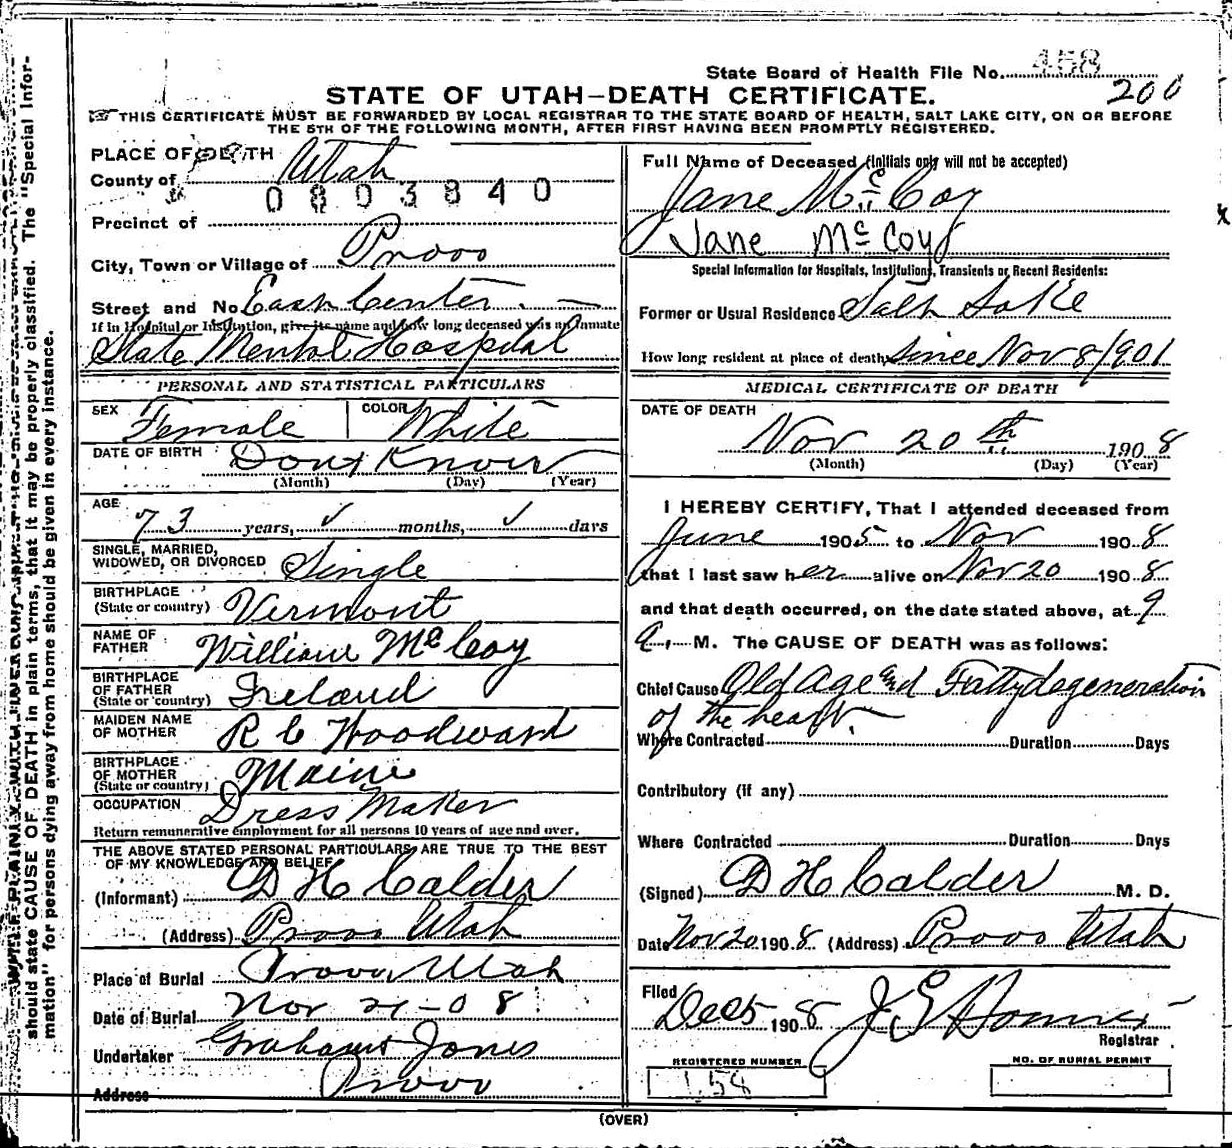 State Board of Health File No. 458
200
STATE OF UTAH—DEATH CERTIFICATE.
☞ THIS CERTIFICATE MUST BE FORWARDED BY LOCAL REGISTRAR TO THE STATE BOARD OF HEALTH, SALT LAKE CITY, ON OR BEFORE
THE 5TH OF THE FOLLOWING MONTH, AFTER FIRST HAVING BEEN PROMPTLY REGISTERED.
PLACE OF DEATH
County of Utah
0803840
Precinct of
City, Town or Village of Provo
Street and No. East Center. —
If in Hospital or Institution, give its name and how long deceased was an inmate
State Mental Hospital
PERSONAL AND STATISTICAL PARTICULARS
SEX Female COLOR White
DATE OF BIRTH Dont Know
(Month) (Day) (Year)
AGE
73 years, ✓ months, ✓ days
SINGLE, MARRIED,
WIDOWED, OR DIVORCED Single
BIRTHPLACE
(State or country) Vermont
NAME OF
FATHER William McCoy
BIRTHPLACE
OF FATHER
(State or country) Ireland
MAIDEN NAME
OF MOTHER R C Woodward
BIRTHPLACE
OF MOTHER
(State or country) Maine
OCCUPATION Dress Maker
Return remunerative employment for all persons 10 years of age and over.
THE ABOVE STATED PERSONAL PARTICULARS ARE TRUE TO THE BEST
OF MY KNOWLEDGE AND BELIEF
(Informant) D H Calder
(Address) Provo Utah
Place of Burial Provo, Utah
Date of Burial Nov 21-08
Undertaker Graham & Jones
Address Provo
Full Name of Deceased (Initials only will not be accepted)
Jane McCoy
Jane McCoy
Special Information for Hospitals, Institutions, Transients or Recent Residents:
Former or Usual Residence Salt Lake
How long resident at place of death since Nov 8/901
MEDICAL CERTIFICATE OF DEATH
DATE OF DEATH
Nov 20th 1908
(Month) (Day) (Year)
I HEREBY CERTIFY, That I attended deceased from
June 1905 to Nov 1908
that I last saw her alive on Nov 20 1908
and that death occurred, on the date stated above, at 9
a. M. The CAUSE OF DEATH was as follows:
Chief Cause Old Age and Fatty degeneration
of the heart.
Where Contracted Duration Days
Contributory (if any)
Where Contracted Duration Days
(Signed) D H Calder M. D.
Date Nov 20 1908 (Address) Provo Utah
Filed Dec 5 1908 J E
Registrar
REGISTERED NUMBER
158
NO. OF BURIAL PERMIT
(OVER)
should state CAUSE OF DEATH in plain terms, that it may be properly classified. The "Special Infor-
mation" for persons dying away from home should be given in every instance.